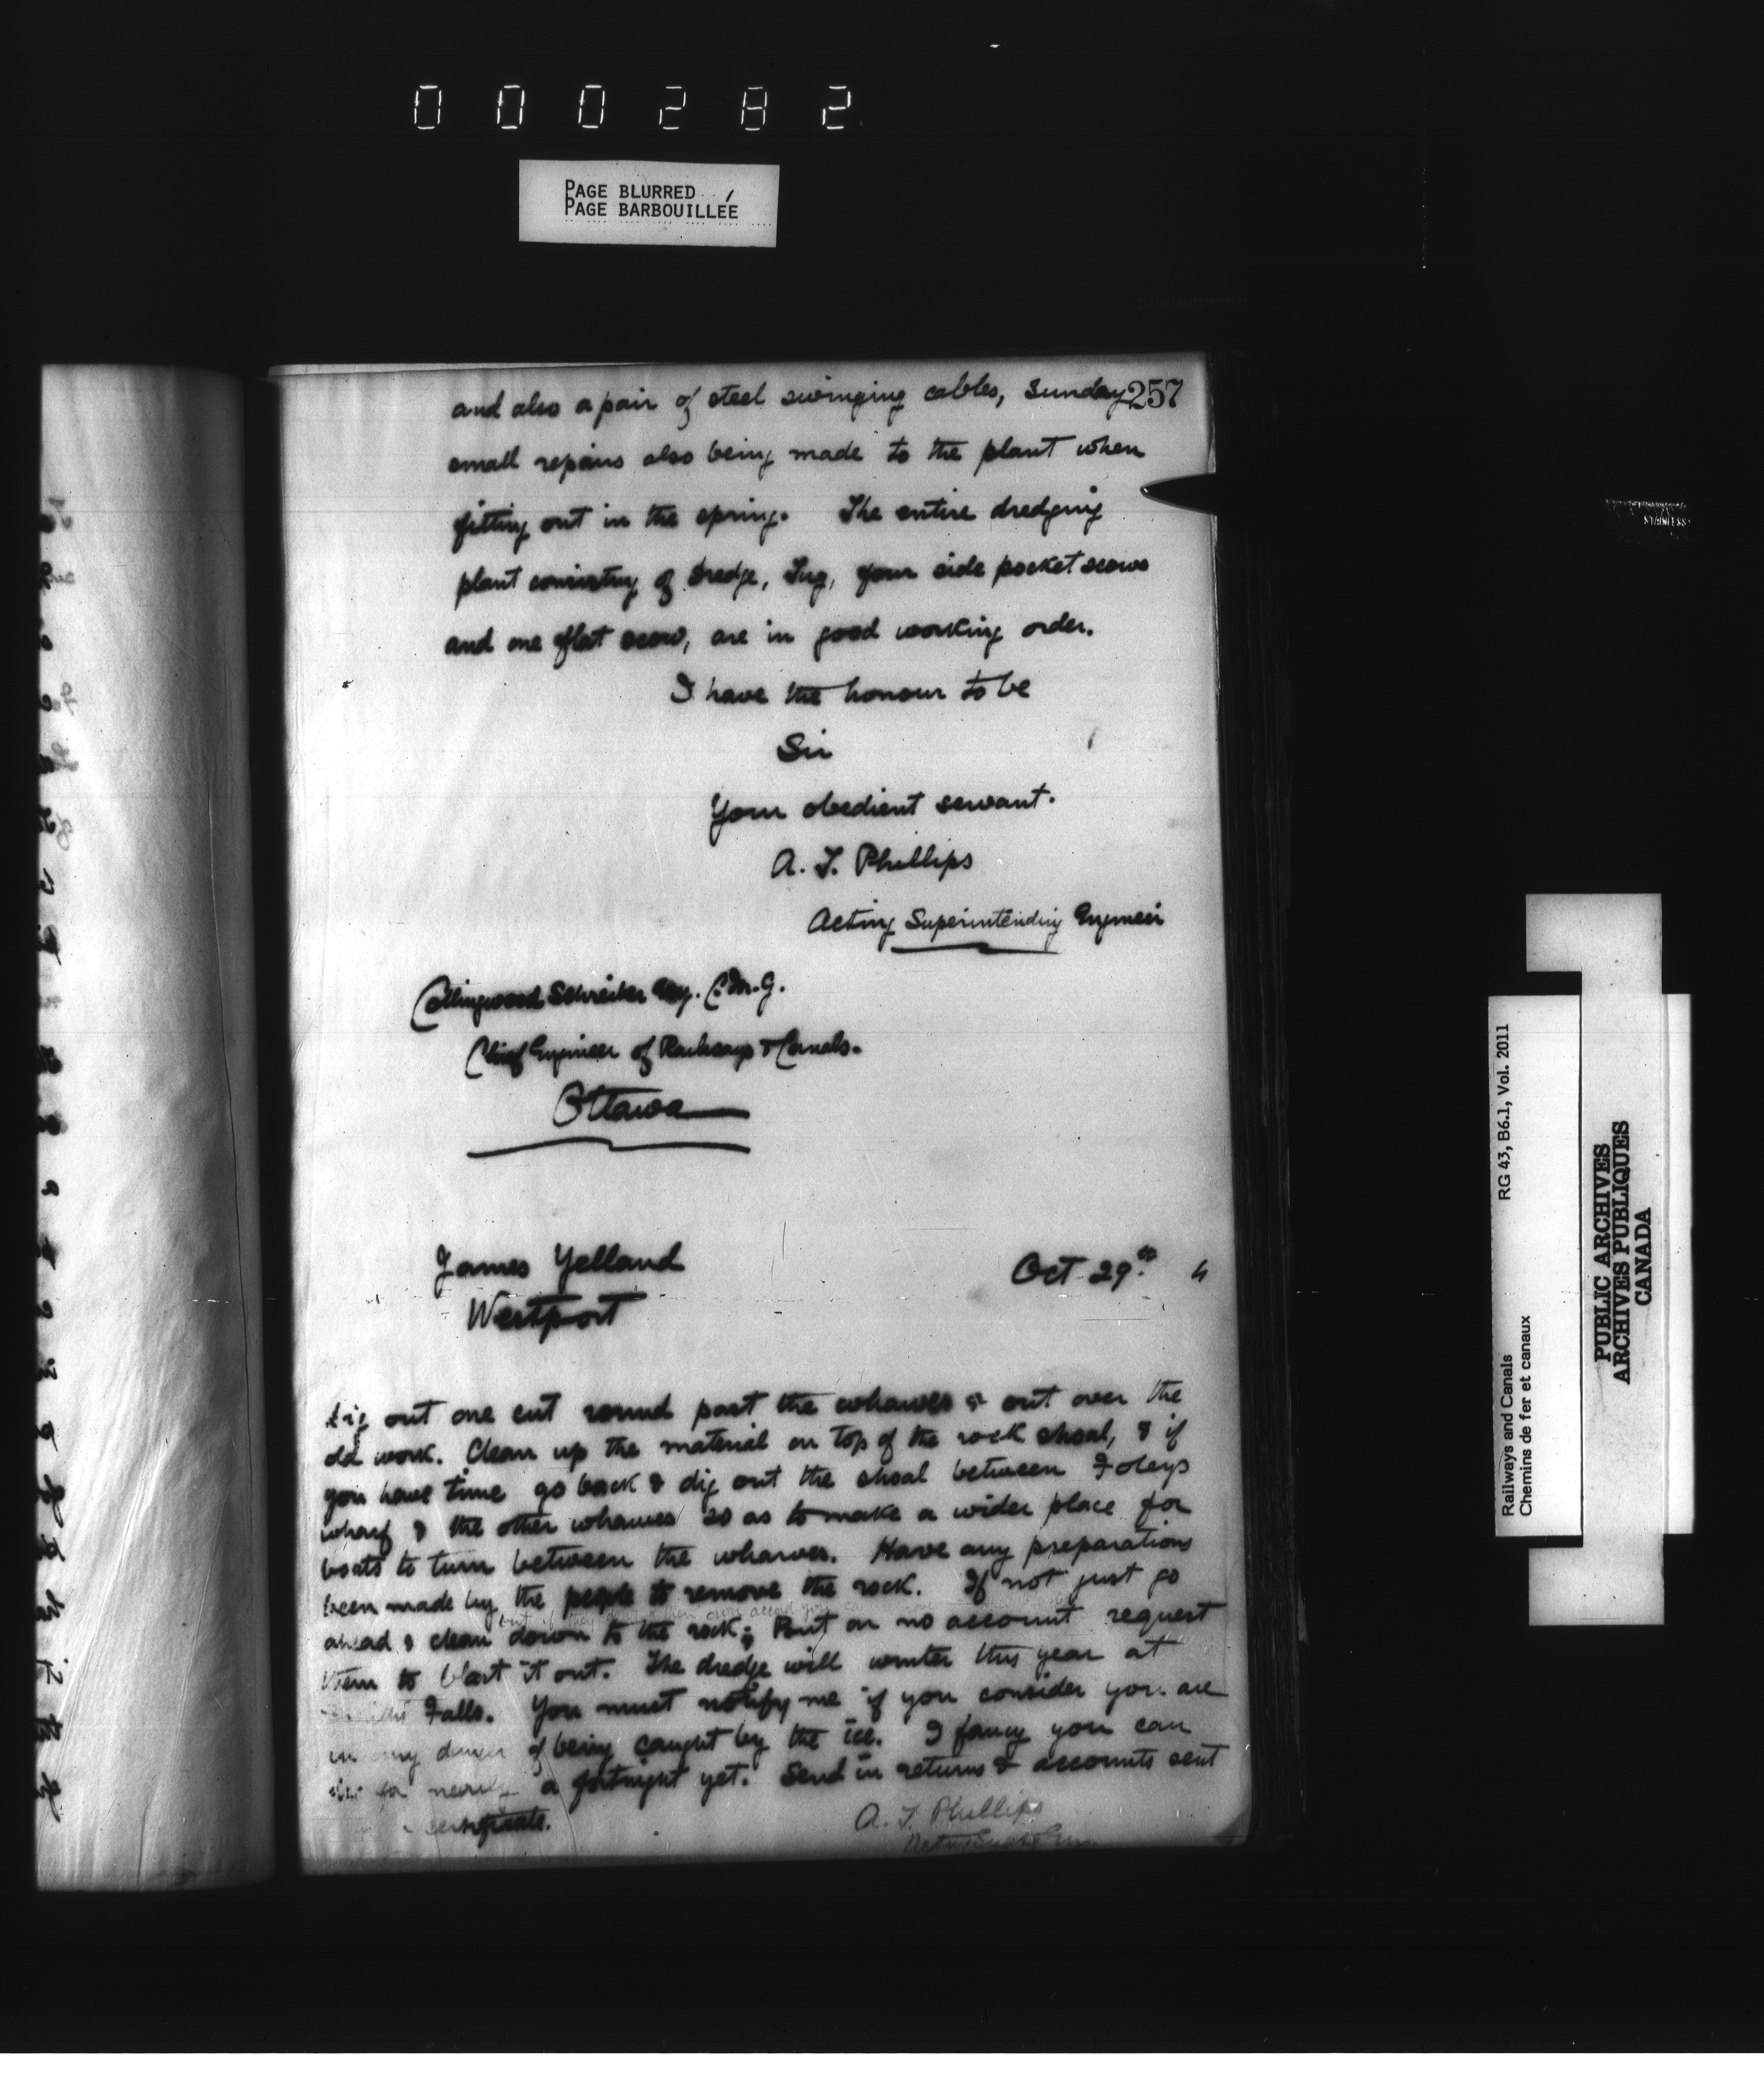 000282
PAGE BLURRED
PAGE BARBOUILLÉE
257
and also a pair of steel swinging cables, Sunday
small repairs also being made to the plant when
fitting out in the spring. The entire dredging
plant consisting of Dredge, Tug, four side pocket scows
and one flat scow, are in good working order.
I have the honour to be
Sir
Your obedient servant.
A. T. Phillips
Acting Superintending Engineer
Collingwood Schreiber Esq. C.M.G.
Chief Engineer of Railways & Canals.
Ottawa
James Yelland
Oct 29th 4
Westport
Dig out one cut round past the wharves & out over the
old work. Clean up the material on top of the rock shoal, & if
you have time go back & dig out the shoal between Foleys
wharf & the other wharves so as to make a wider place for
boats to turn between the wharves. Have any preparations
been made by the people to remove the rock. If not just go
ahead & clean down to the rock; But on no account request
them to blast it out. The dredge will winter this year at
Falls. You must notify me if you consider you are
in any danger of being caught by the ice. I fancy you can
for nearly a fortnight yet. Send in returns & accounts sent
certificate.
A. T. Phillips
RG 43, B6.1, Vol. 2011
Railways and Canals
Chemins de fer et canaux
PUBLIC ARCHIVES
ARCHIVES PUBLIQUES
CANADA